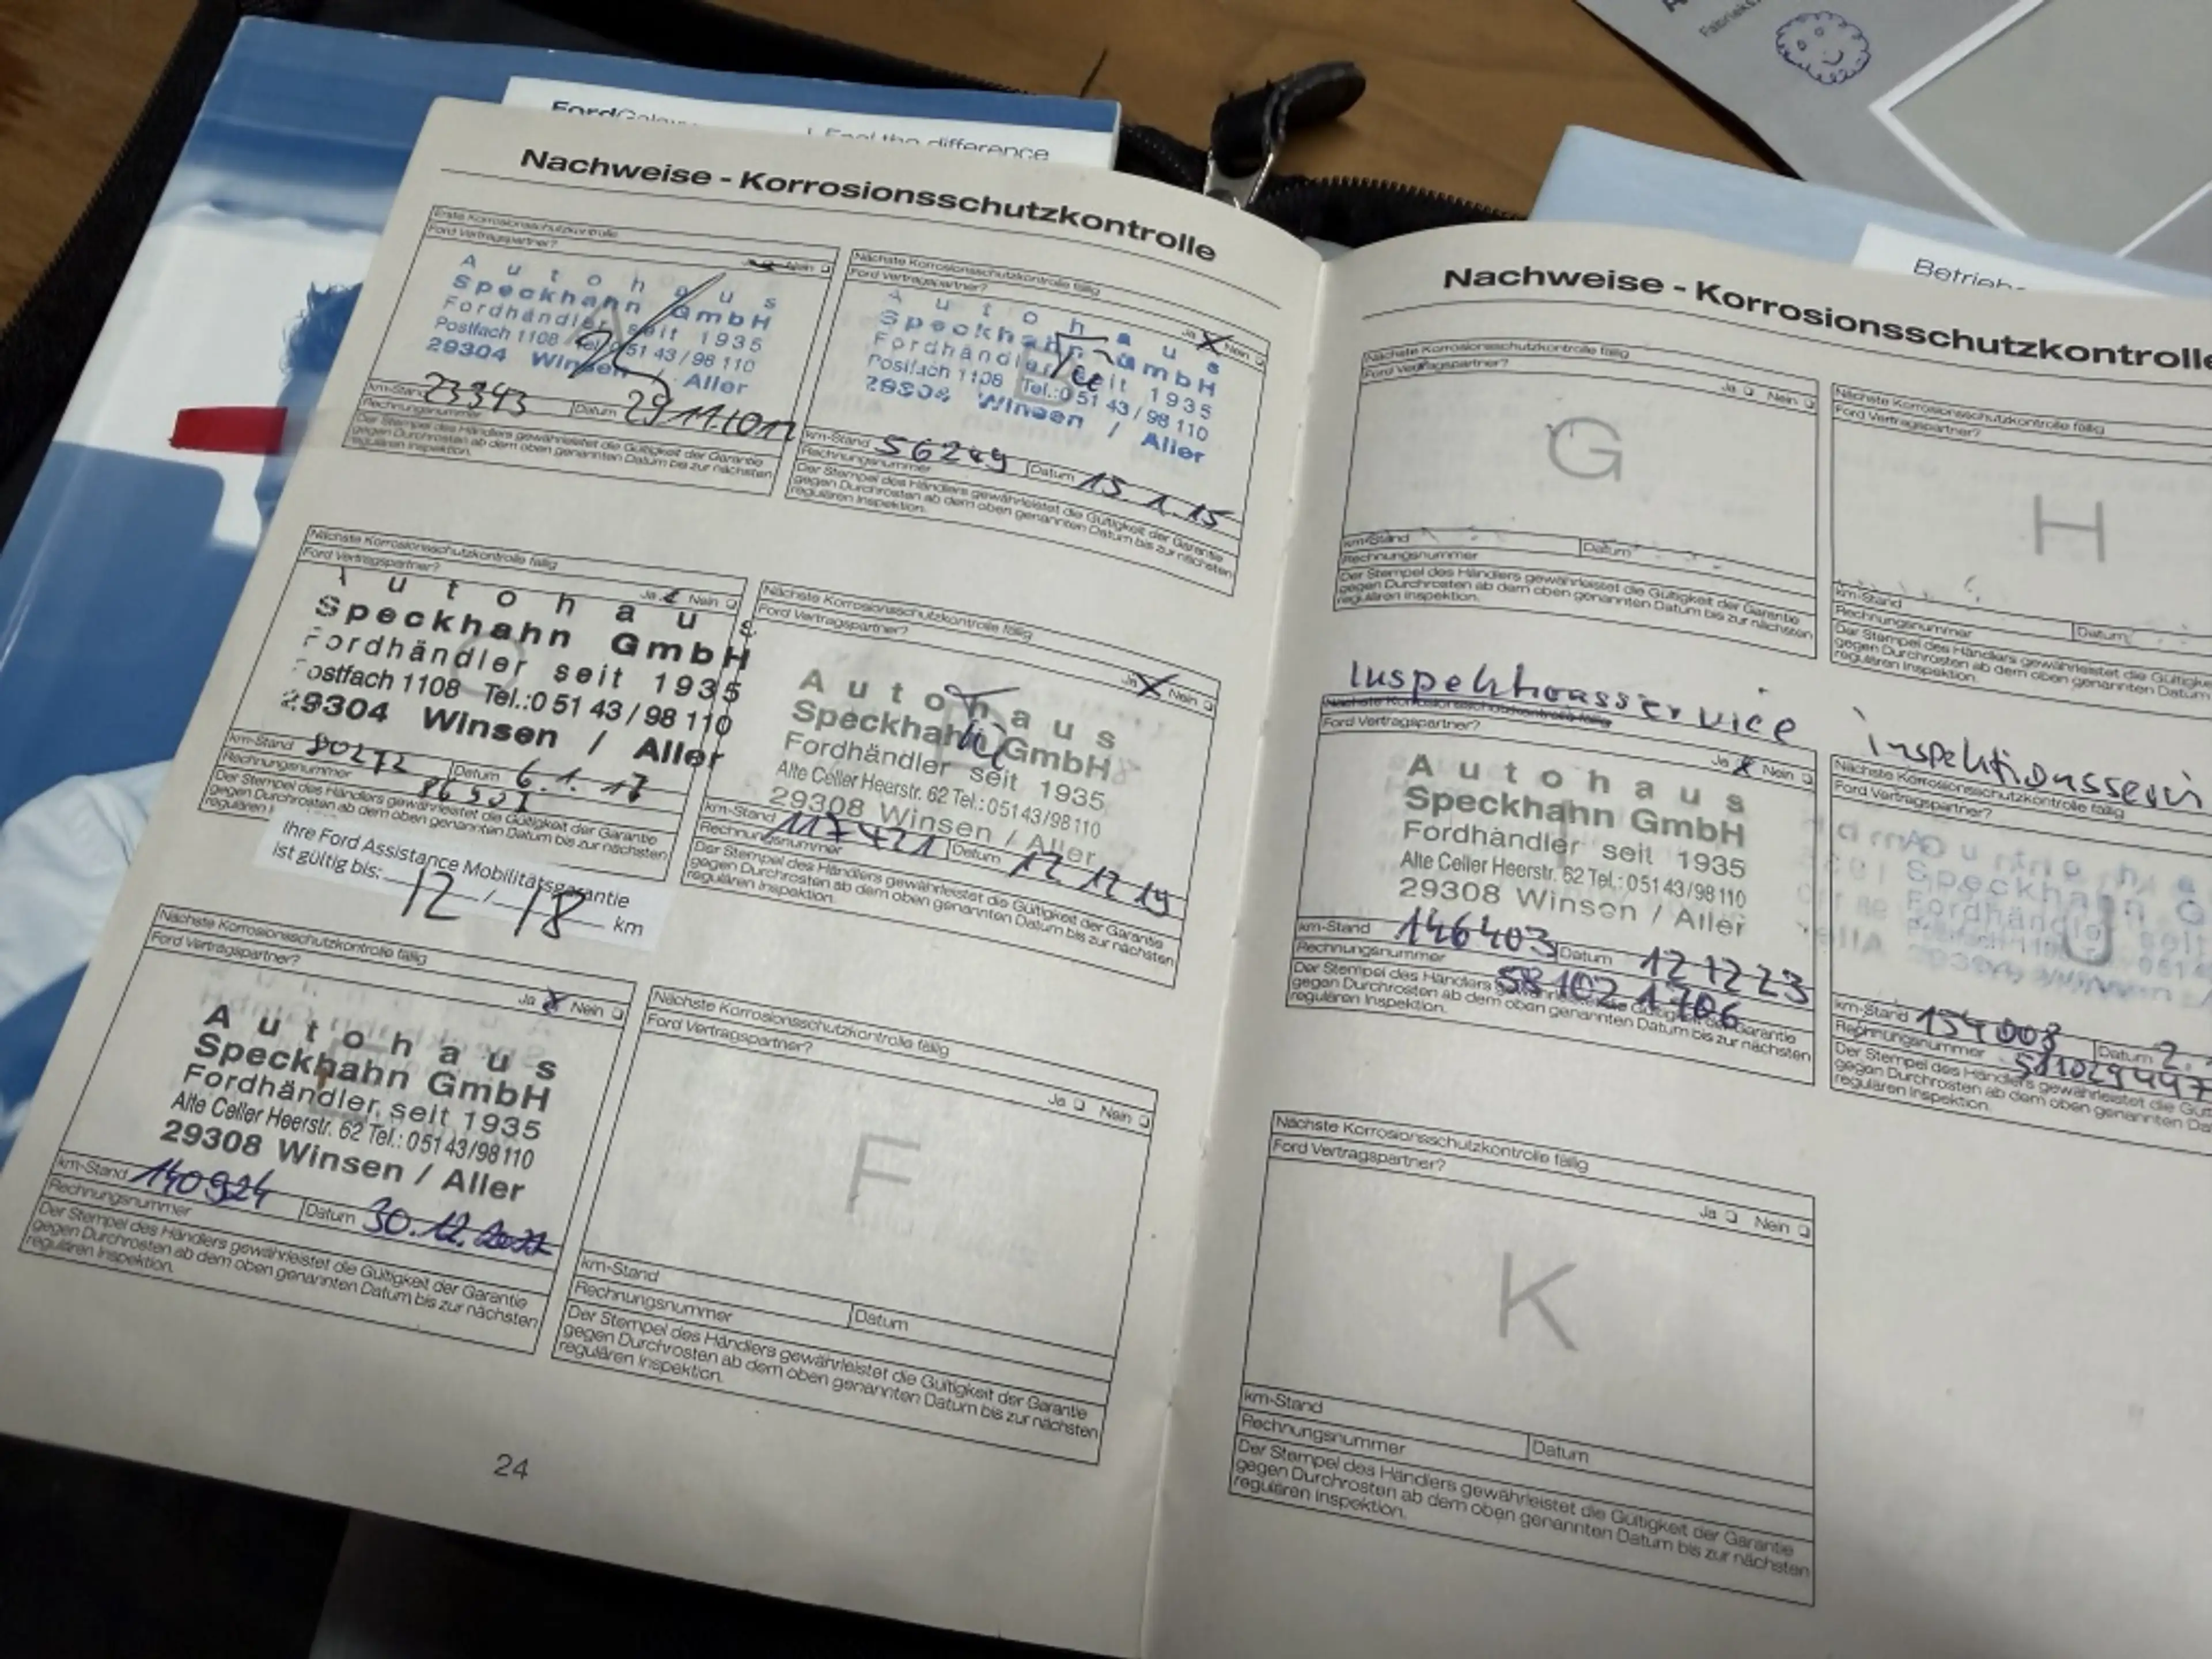 Ford
Feel the difference
Nachweise - Korrosionsschutzkontrolle
Erste Korrosionsschutzkontrolle
Ford Vertragspartner?
Nein
Autohaus
Speckhahn GmbH
Fordhändler seit 1935
Postfach 1108 Tel.:0 51 43 / 98 110
29304 Winsen / Aller
km-Stand 23343
Rechnungsnummer
Datum
Der Stempel des Händlers gewährleistet die Gültigkeit der Garantie
gegen Durchrosten ab dem oben genannten Datum bis zur nächsten
regulären Inspektion.
Nächste Korrosionsschutzkontrolle fällig
Ford Vertragspartner?
Ja X Nein
Autohaus
Speckhahn GmbH
Fordhändler seit 1935
Postfach 1108 Tel.:0 51 43 / 98 110
29304 Winsen / Aller
km-Stand 56249
Rechnungsnummer
Datum 15.1.15
Der Stempel des Händlers gewährleistet die Gültigkeit der Garantie
gegen Durchrosten ab dem oben genannten Datum bis zur nächsten
regulären Inspektion.
Nächste Korrosionsschutzkontrolle fällig
Ford Vertragspartner?
Ja X Nein
Autohaus
Speckhahn GmbH
Fordhändler seit 1935
Postfach 1108 Tel.:0 51 43 / 98 110
29304 Winsen / Aller
km-Stand 80272
Rechnungsnummer
Datum 6.1.17
Der Stempel des Händlers gewährleistet die Gültigkeit der Garantie
gegen Durchrosten ab dem oben genannten Datum bis zur nächsten
regulären
Ihre Ford Assistance Mobilitätsgarantie
ist gültig bis: 12 / 18 km
Nächste Korrosionsschutzkontrolle fällig
Ford Vertragspartner?
Ja X Nein
Autohaus
Speckhahn GmbH
Fordhändler seit 1935
Alte Celler Heerstr. 62 Tel.: 051 43/98 110
29308 Winsen / Aller
km-Stand 117421
Rechnungsnummer
Datum 17.12.19
Der Stempel des Händlers gewährleistet die Gültigkeit der Garantie
gegen Durchrosten ab dem oben genannten Datum bis zur nächsten
regulären Inspektion.
Nächste Korrosionsschutzkontrolle fällig
Ford Vertragspartner?
Ja X Nein
Autohaus
Speckhahn GmbH
Fordhändler seit 1935
Alte Celler Heerstr. 62 Tel.: 051 43/98 110
29308 Winsen / Aller
km-Stand 140924
Rechnungsnummer
Datum 30.12.
Der Stempel des Händlers gewährleistet die Gültigkeit der Garantie
gegen Durchrosten ab dem oben genannten Datum bis zur nächsten
regulären Inspektion.
Nächste Korrosionsschutzkontrolle fällig
Ford Vertragspartner?
Ja Nein
F
km-Stand
Rechnungsnummer
Datum
Der Stempel des Händlers gewährleistet die Gültigkeit der Garantie
gegen Durchrosten ab dem oben genannten Datum bis zur nächsten
regulären Inspektion.
24
Nachweise - Korrosionsschutzkontrolle
Nächste Korrosionsschutzkontrolle fällig
Ford Vertragspartner?
Ja Nein
G
km-Stand
Datum
Rechnungsnummer
Der Stempel des Händlers gewährleistet die Gültigkeit der Garantie
gegen Durchrosten ab dem oben genannten Datum bis zur nächsten
regulären Inspektion.
Nächste Korrosionsschutzkontrolle fällig
Ford Vertragspartner?
H
km-Stand
Rechnungsnummer
Datum
Der Stempel des Händlers gewährleistet die Gültigke
gegen Durchrosten ab dem oben genannten Datum
regulären Inspektion.
Inspektionsservice
Nächste Korrosionsschutzkontrolle fällig
Ford Vertragspartner?
Ja X Nein
Autohaus
Speckhahn GmbH
Fordhändler seit 1935
Alte Celler Heerstr. 62 Tel.: 051 43/98 110
29308 Winsen / Aller
km-Stand 146403
Datum 121223
Rechnungsnummer
Der Stempel des Händlers gewährleistet die Gültigkeit der Garantie
gegen Durchrosten ab dem oben genannten Datum bis zur nächsten
regulären Inspektion.
inspektionsservi
Nächste Korrosionsschutzkontrolle fällig
Ford Vertragspartner?
Speckhahn G
Fordhändler seit
J
km-Stand 154008
Datum 2.
Rechnungsnummer
Der Stempel des Händlers gewährleistet die Gül
gegen Durchrosten ab dem oben genannten Da
regulären Inspektion.
Nächste Korrosionsschutzkontrolle fällig
Ford Vertragspartner?
Ja Nein
K
km-Stand
Rechnungsnummer
Datum
Der Stempel des Händlers gewährleistet die Gültigkeit der Garantie
gegen Durchrosten ab dem oben genannten Datum bis zur nächsten
regulären Inspektion.